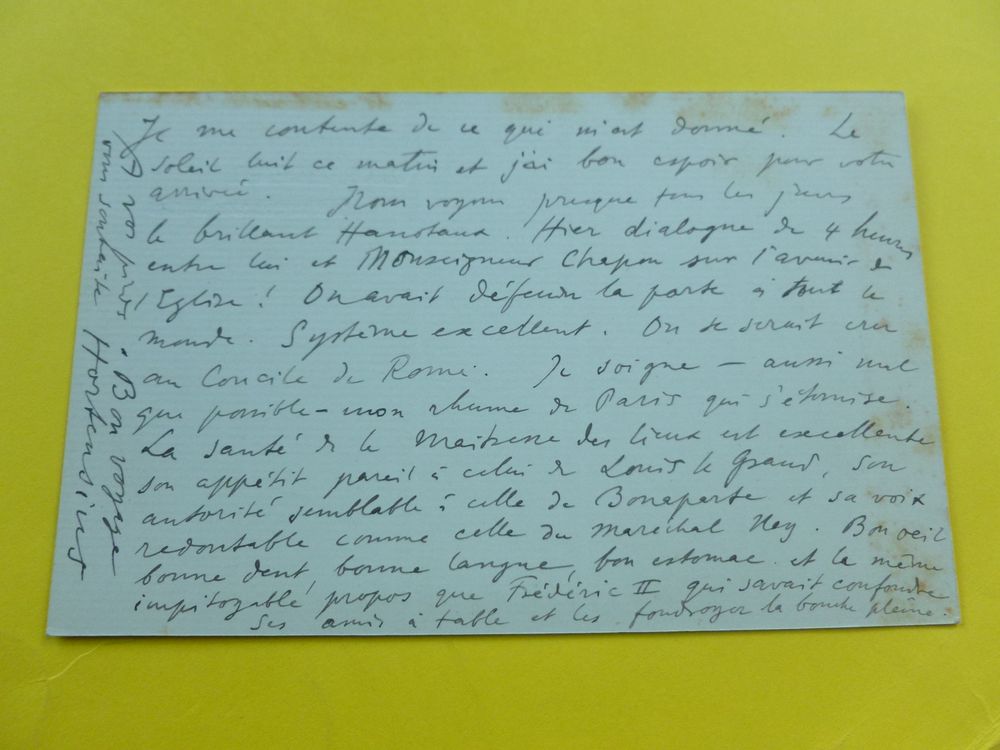 Je me contente de ce qui m'est donné. Le
soleil luit ce matin et j'ai bon espoir pour votre
arrivée. Nous voyons presque tous les jours
le brillant Hanotaux. Hier dialogue de 4 heures
entre lui et Monseigneur Chapon sur l'avenir de
l'Eglise! On avait défendu la porte à tout le
monde. Système excellent. On se serait cru
au Concile de Rome. Je soigne - aussi mal
que possible - mon rhume de Paris qui s'éternise.
La santé de la Maitresse des lieux est excellente
son appétit pareil à celui de Louis le Grand, son
autorité semblable à celle de Bonaparte et sa voix
redoutable comme celle du Maréchal Ney. Bon oeil
bonne dent, bonne langue, bon estomac et le même
impitoyable propos que Frédéric II qui savait confondre
ses amis à table et les foudroyer la bouche pleine.
A vos pieds. Bon voyage
vous souhaite Hortensius